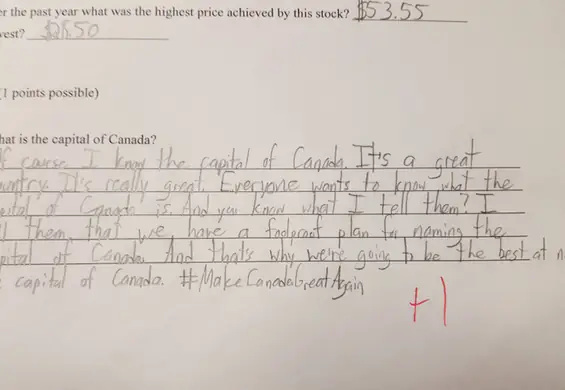 er the past year what was the highest price achieved by this stock? $53.55
vest? $28.50
(1 points possible)
hat is the capital of Canada?
f course I know the capital of Canada. It's a great
untry. It's really great. Everyone wants to know what the
pital of Canada is. And you know what I tell them? I
l them, that we have a foolproof plan for naming the
pital of Canada. And that's why we're going to be the best at n
capital of Canada. #MakeCanadaGreatAgain
+1